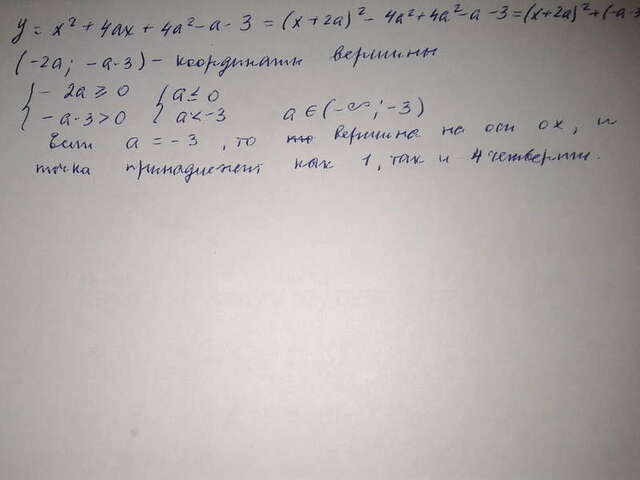 y = x² + 4ax + 4a² - a - 3 = (x + 2a)² - 4a² + 4a² - a - 3 = (x + 2a)² + (-a-3
(-2a; -a-3) - координаты вершины
{ - 2a ≥ 0 { a ≤ 0
{ - a - 3 > 0 { a < -3 a ∈ (-∞; -3)
Если a = - 3 , то вершина на оси ox, и
точка принадлежит как 1, так и 4 четверти.